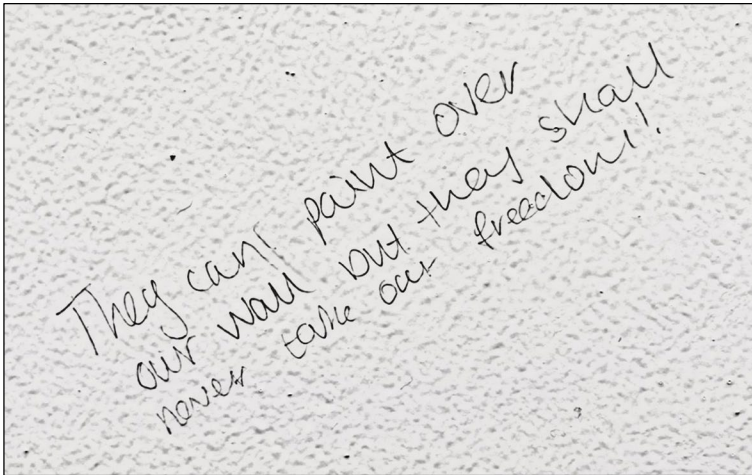 They can paint over
our wall but they shall
never take our freedom!!